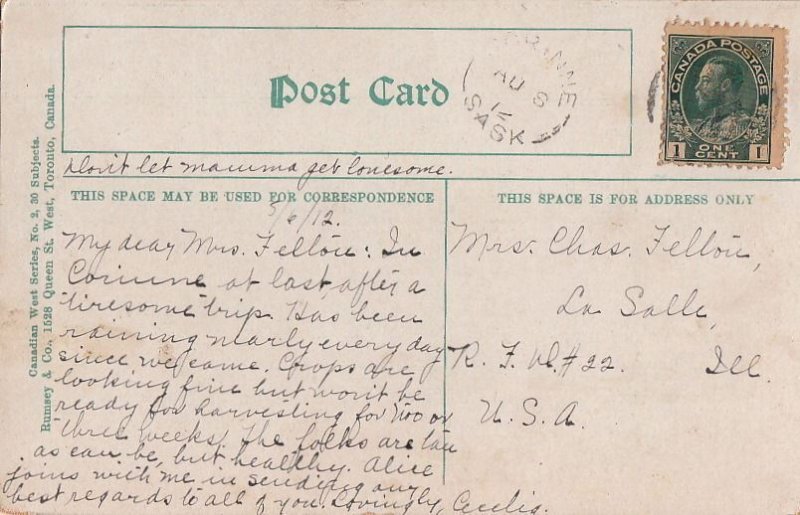 Canadian West Series, No. 2, 30 Subjects.
Rumsey & Co., 1528 Queen St. West, Toronto, Canada.
Post Card
CORINNE
AU 6
12
SASK
CANADA POSTAGE
1 ONE CENT 1
Don't let mamma get lonesome.
THIS SPACE MAY BE USED FOR CORRESPONDENCE
8/6/12.
My dear Mrs. Felton: In
Corinne at last, after a
tiresome trip. Has been
raining nearly every day
since we came. Crops are
looking fine but won't be
ready for harvesting for two or
three weeks. The folks are tan
as can be, but healthy. Alice
joins with me in sending our
best regards to all of you. Lovingly, Cecelia.
THIS SPACE IS FOR ADDRESS ONLY
Mrs. Chas. Felton,
La Salle,
R. F. D. # 22. Ill.
U. S. A.